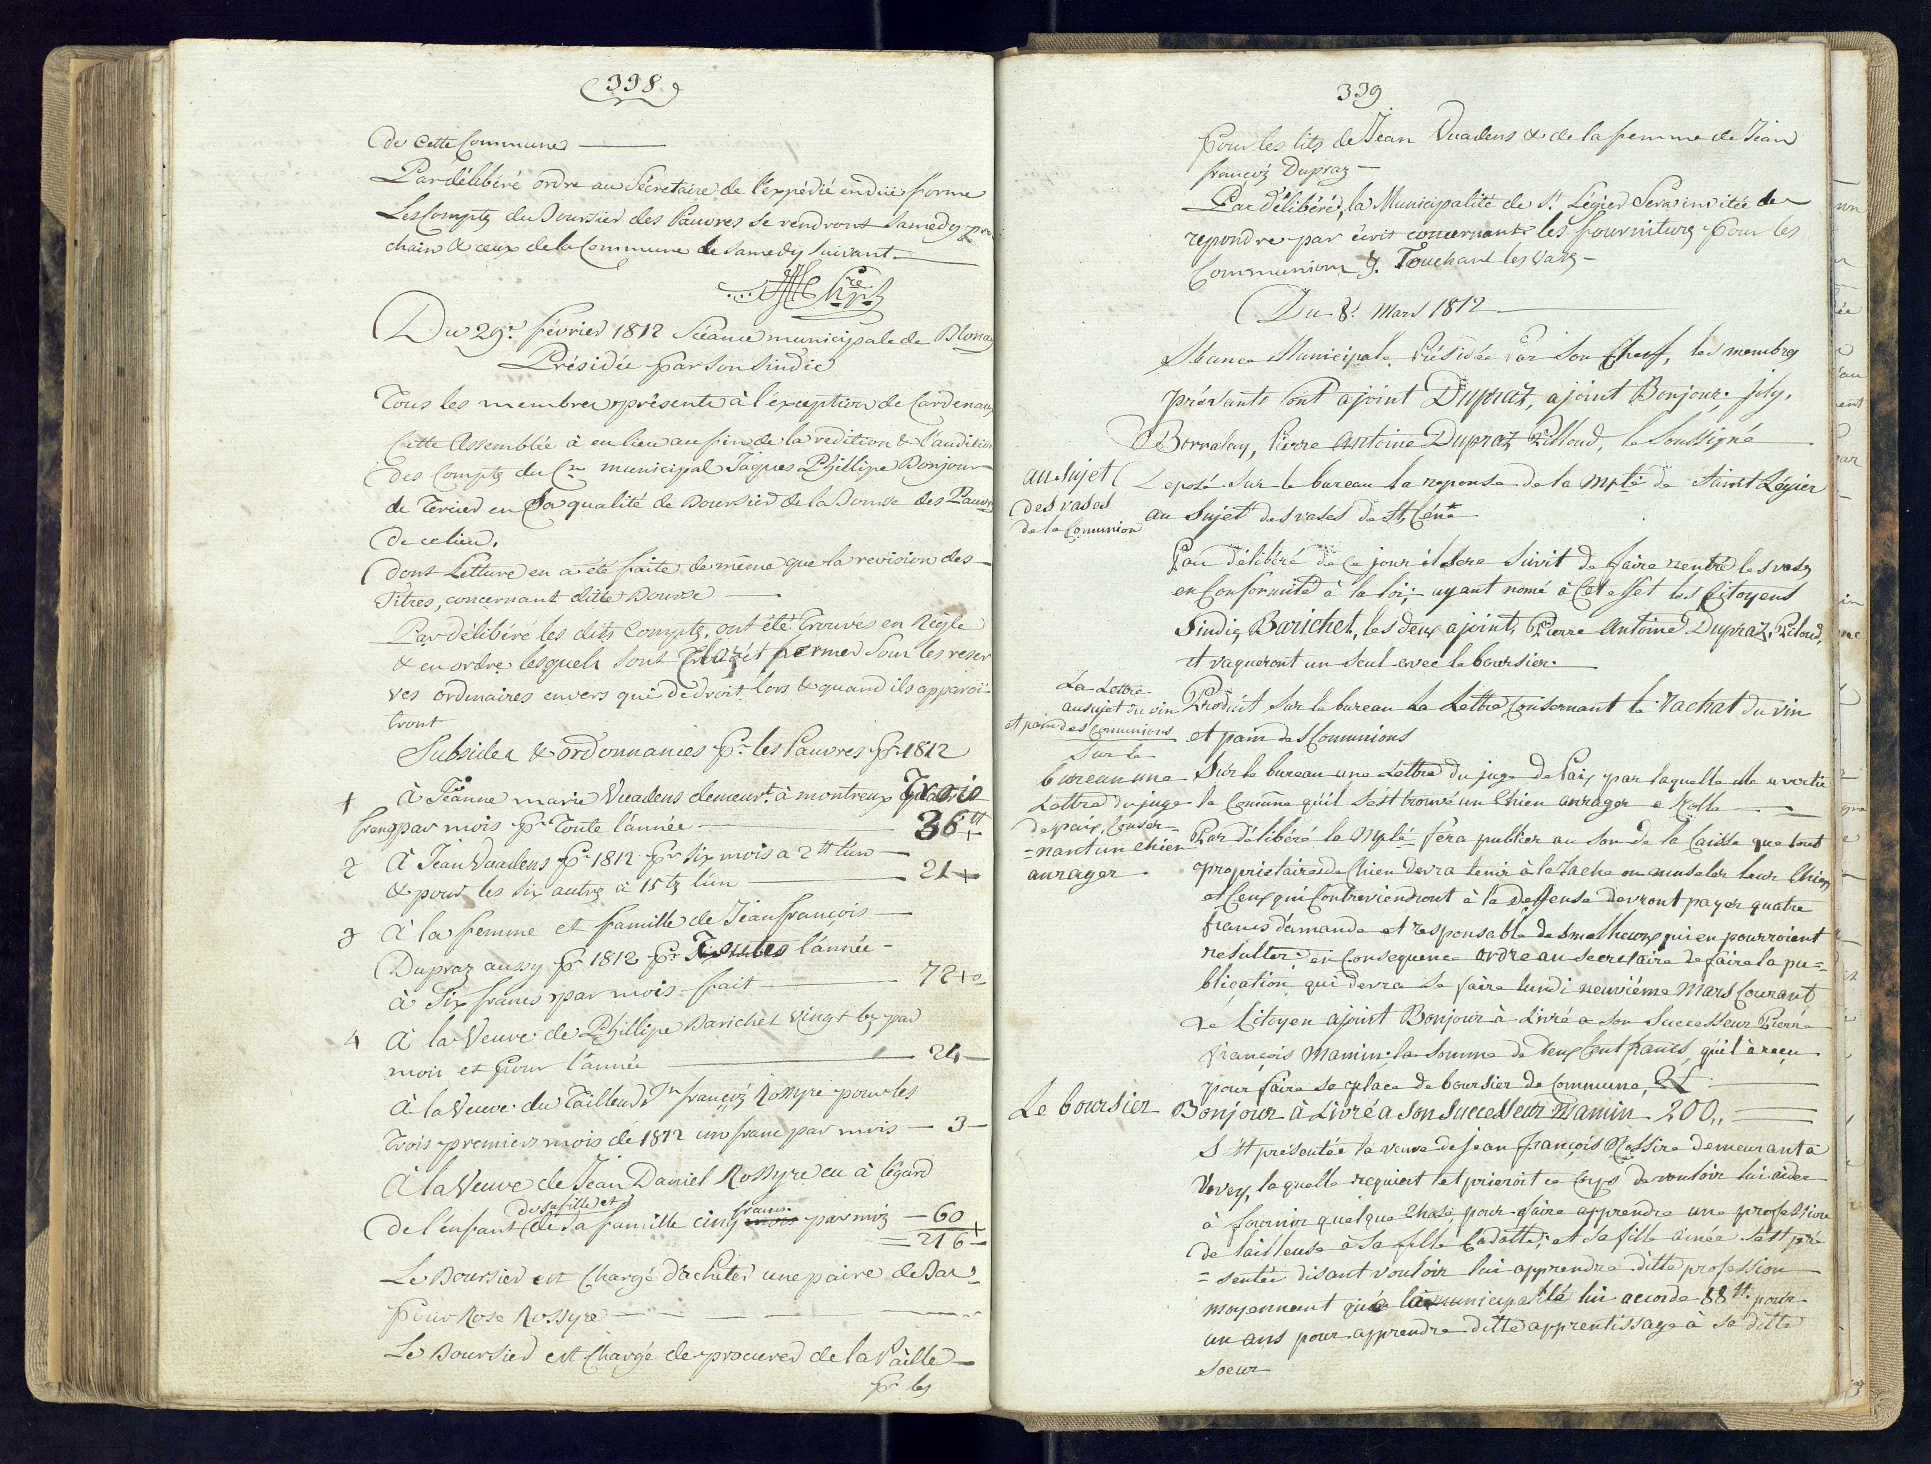 338
de cette Commune
Par délibéré ordre au Sécretaire de l'expédié endüe forme
Les Compts du Boursier des Pauvres se rendront Samedy pro
chain & ceux de la Commune le Samedy Suivant
Du 29e. février 1812 Séance municipale de Blonay
Présidée par son Sindic
Tous les membres présents à l'éxception de Cardenau
Cette Assemblée à eu lieu au fin de la redition & l'audition
des Compts du Cn municipal Jâques Phillipe Bonjour
de Tercier en Sa qualité de Boursier de la Bourse des Pauvres
de ce lieu.
dont Letture en a été faite de même que la revision des
Titres, concernant ditte Bourse
Par délibéré les dits Compts. ont été Trouvés en Règle
& en ordre lesquels sont fermer Sour les reser
ves ordinaires envers qui de droit lors & quand ils apparoi
tront
Subsides & ordonnances pr. les Pauvres pr. 1812
1 à Jeanne marie Vuadens demeurt. à montreux Trois
frans par mois pr Toute l'année 36 tt
2 à Jean Vuadens pr 1812 pr six mois a 2 tt l'un
& pour les six autres à 15 bz l'un 21
3 à la femme et famille de Jean françois
Dupraz aussy pr 1812 pr Toutes l'année
à Six francs par mois fait 72
4 à la Veuve de Phillipe Barichet vingt bz par
mois et pour l'année 24
à la Veuve du Tailleur Jn françois Rossyre pour les
Trois premiers mois de 1812 un franc par mois 3
à la Veuve de Jean Daniel Rossyre eu à légard
de sa fille et francs
de l'enfant de sa famille cinq mois par mois 60
216
Le Boursier est Chargé d'acheter une paire de Bas
pour Rose Rossyre
Le Boursier est Chargé de procurer de la Paille
pr les
339
Pour les lits de Jean Vuadens & de la femme de Jean
françois Dupraz
Par délibéré, la Municipalité de St Légier Sera invitée de
repondre par écrit concernant les fournitures pour les
Communions & Touchant les vases
Du 8. Mars 1812
Séance Municipale Présidée Par Son Cheuf, les membres
présants sont ajoint Dupraz, ajoint Bonjour,
Borralay, Pierre Antoine Dupraz Pilloud, le Soussigné
au Sujet
des vases
de la Comunion
Deposé Sur le bureau la reponse de la Mpté de Saint Légier
au Sujet des vases de Ste Céne
Par délibéré de Ce jour il Sera Suivit de faire rentré les vases
en Conformité à la loi; ayant nomé à Cet effet les Citoyens
Sindic Barichet, les deux ajoint, Pierre Antoine Dupraz, Piloud,
et vaqueront un seul avec le boursier.
La Lettre
au sujet du vin
et pain des Communions
Produit Sur le bureau La Lettre Consernant le rachat du vin
et pain des Communions
Sur le
bureau une
Lettre du juge
de paix, Conser-
=nant un chien
anrager
Sur le bureau une Lettre du juge de Paix par laquelle elle avertie
la Comune qu'il Sest trouvé un Chien anrager a Rolle
Par délibéré la Mplé fera publier au Son de la Caisse que tout
propriétaires de Chien devra tenir à la tache ou museler leur Chien
et Ceux qui Contreviendront à la deffense devront payer quatre
francs d'amande et responsable des malheurs qui en pourroient
resulter: en Consequence ordre au secretaire de faire la pu=
blication qui devra Se faire lundi neuvième Mars Courant
Le Citoyen ajoint Bonjour à Livré a son Successeur Pierre
François Mamin la Somme de deux Cent francs, qu'il à reçu
pour faire se place de boursier de Commune,
Le boursier
Bonjour à Livré a Son Successeur Mamin 200,,
S'est présentée la veuve de Jean François Rossire demeurant a
Vevey, laquelle requiert et prieroit ce Corps de vouloir lui aider
à fournir quelque Chose, pour faire apprendre une profession
de tailleuse à Sa fille Cadatte; et Sa fille ainée s'est pré
=sentée disant vouloir lui apprendre ditte profession
moyennant que la municipalité lui accorde 88 tt. pour
un ans pour apprendre ditte apprentissage à Sa ditte
soeur